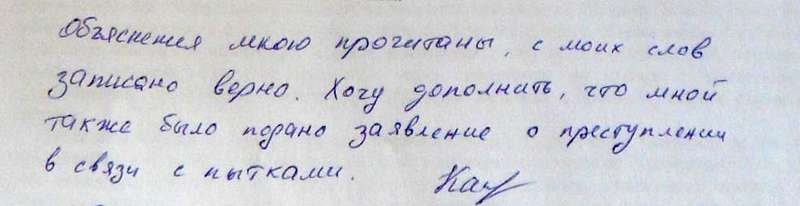 Объяснения мною прочитаны, с моих слов
записано верно. Хочу дополнить, что мной
также было подано заявление о преступлении
в связи с пытками.